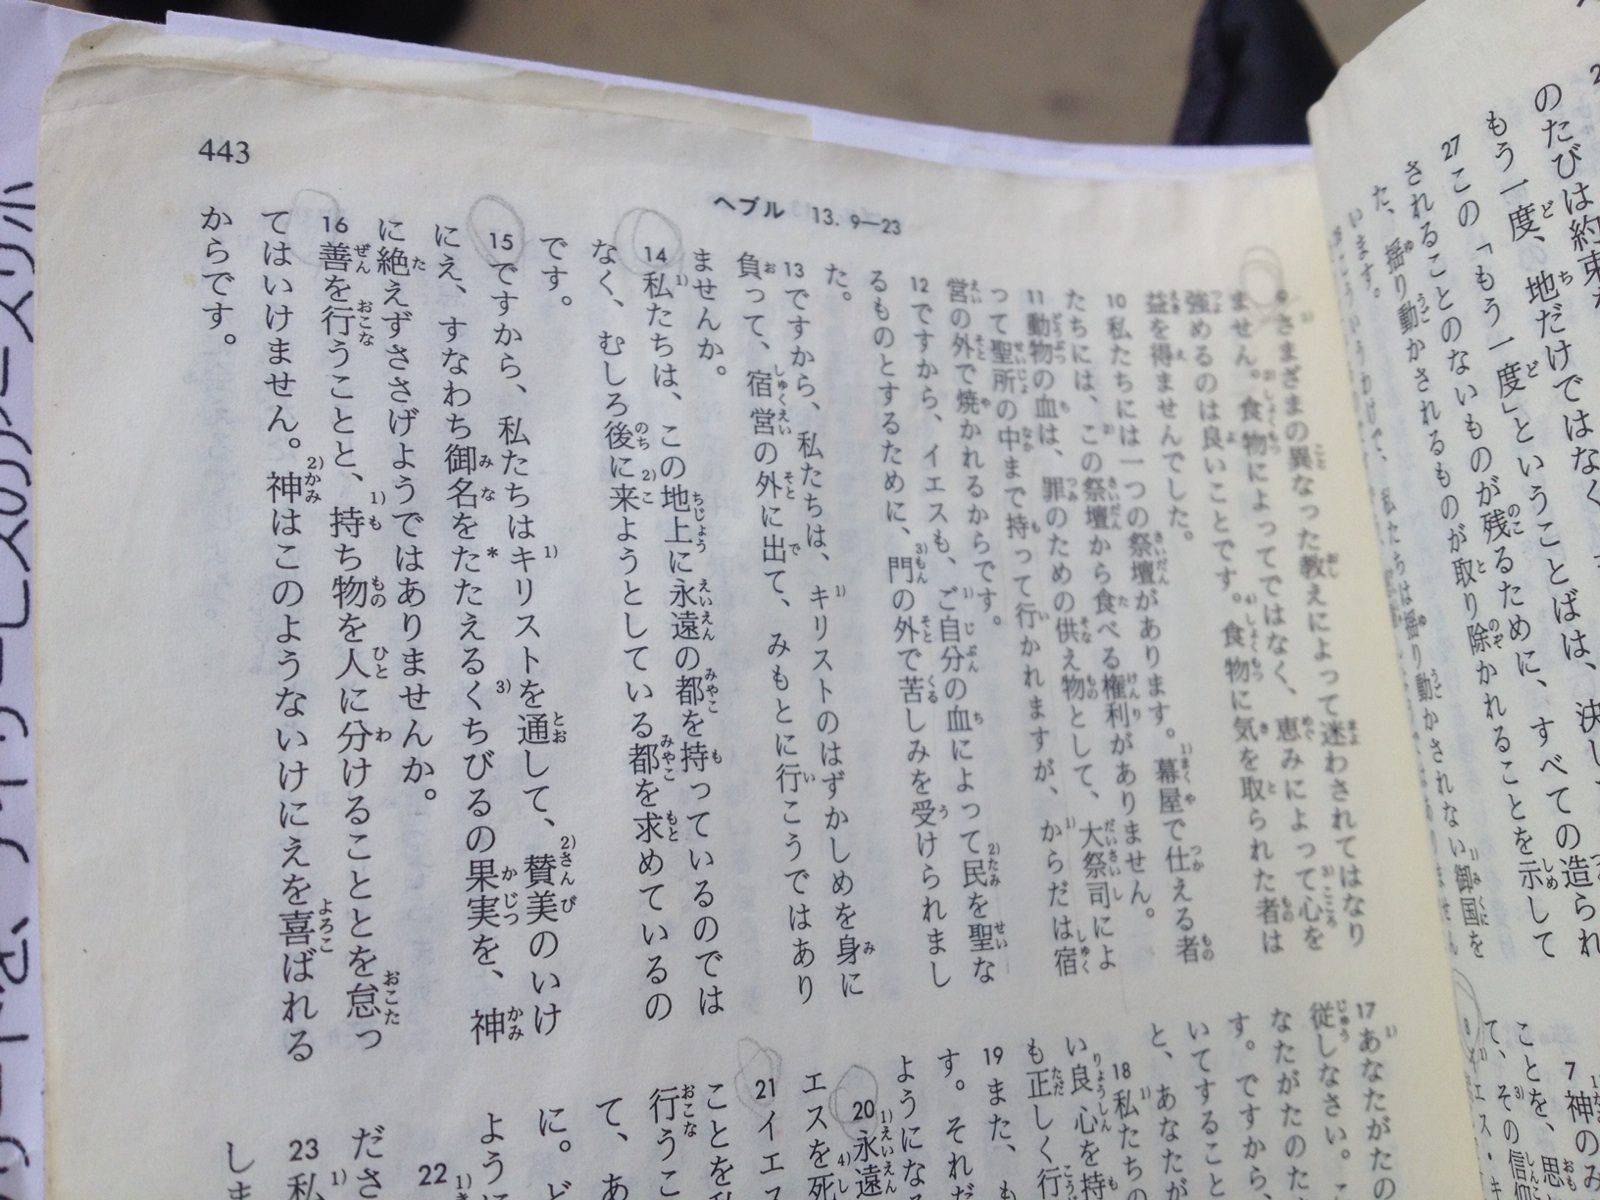 443
ヘブル 13. 9―23
9さまざまの異なった教えによって迷わされてはなり
ません。食物によってではなく、恵みによって心を
強めるのは良いことです。食物に気を取られた者は
益を得ませんでした。
10私たちには一つの祭壇があります。幕屋で仕える者
たちには、この祭壇から食べる権利がありません。
11動物の血は、罪のための供え物として、大祭司によ
って聖所の中まで持って行かれますが、からだは宿
営の外で焼かれるからです。
12ですから、イエスも、ご自分の血によって民を聖な
るものとするために、門の外で苦しみを受けられまし
た。
13ですから、私たちは、キリストのはずかしめを身に
負って、宿営の外に出て、みもとに行こうではあり
ませんか。
14私たちは、この地上に永遠の都を持っているのでは
なく、むしろ後に来ようとしている都を求めているの
です。
15ですから、私たちはキリストを通して、賛美のいけ
にえ、すなわち御名をたたえるくちびるの果実を、神
に絶えずささげようではありませんか。
16善を行うことと、持ち物を人に分けることとを怠っ
てはいけません。神はこのようないけにえを喜ばれる
からです。
17あなたがたの
従しなさい。こ
なたがたのた
す。ですから、
いてすること
と、あなたが
18私たちの
い良心を持
も正しく行
19また、も
す。それだ
ようにな
20永遠
エスを死
21イエス
ことを
行うこ
て、あ
に。ど
ように
22
ださ
23私
しま
のたびは約束
もう一度、地だけではなく
27この「もう一度」ということばは、決し
されることのないものが残るために、すべての造られ
た、揺り動かされるものが取り除かれることを示して
います。
7神のみ
ことを、思
て、その信仰